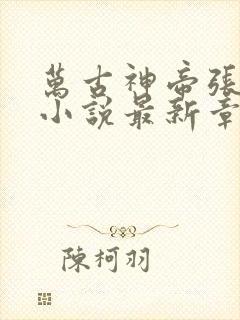 萬古神帝張
小說最新章
陳柯羽